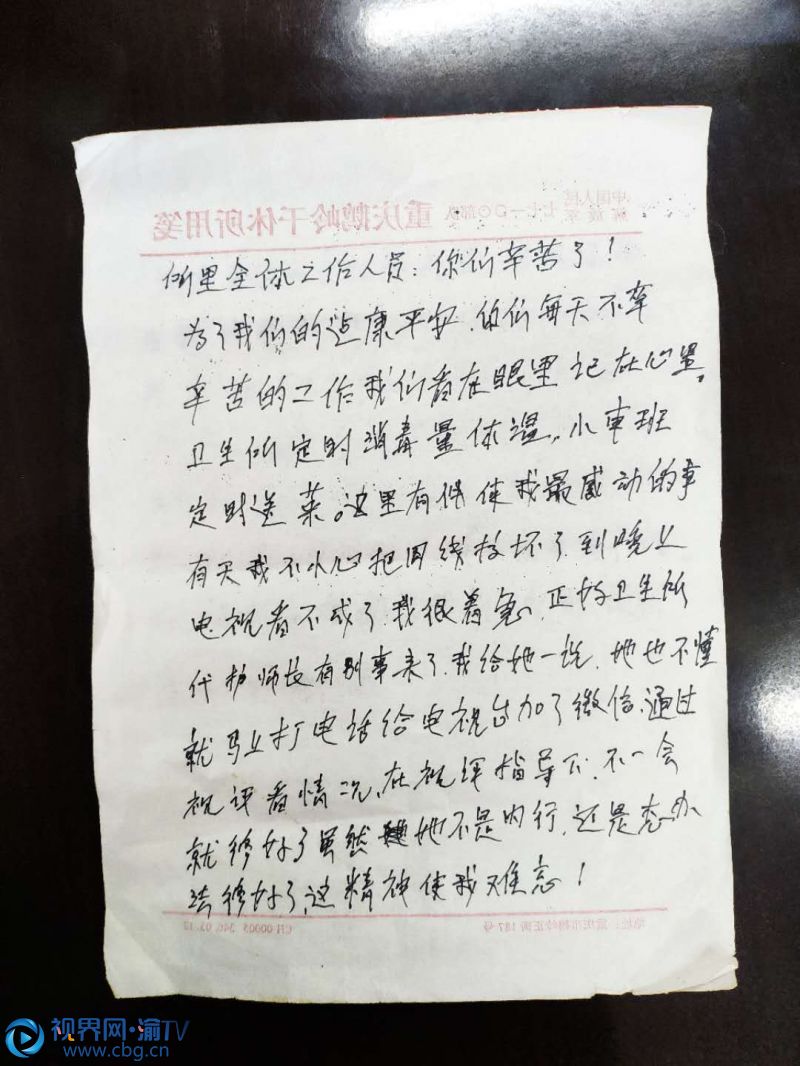 中国人民
解放军 七七一〇〇部队 重庆鹅岭干休所用笺
所里全体工作人员：你们辛苦了！
为了我们的健康平安、你们每天不辛
辛苦的工作我们看在眼里记在心里。
卫生所定时消毒量体温，小车班
定时送菜。这里有件使我最感动的事
有天我不小心把网线拔坏了到晚上
电视看不成了、我很着急、正好卫生所
代护师长有别事来了、我给她一说、她也不懂
就马上打电话给电视台加了微信、通过
视评看情况、在视评指导下、不一会
就修好了虽然她不是内行、还是想办
法修好了、这精神使我难忘！
CH 00005 346.03.12
187号
视界网·渝TV
www.cbg.cn